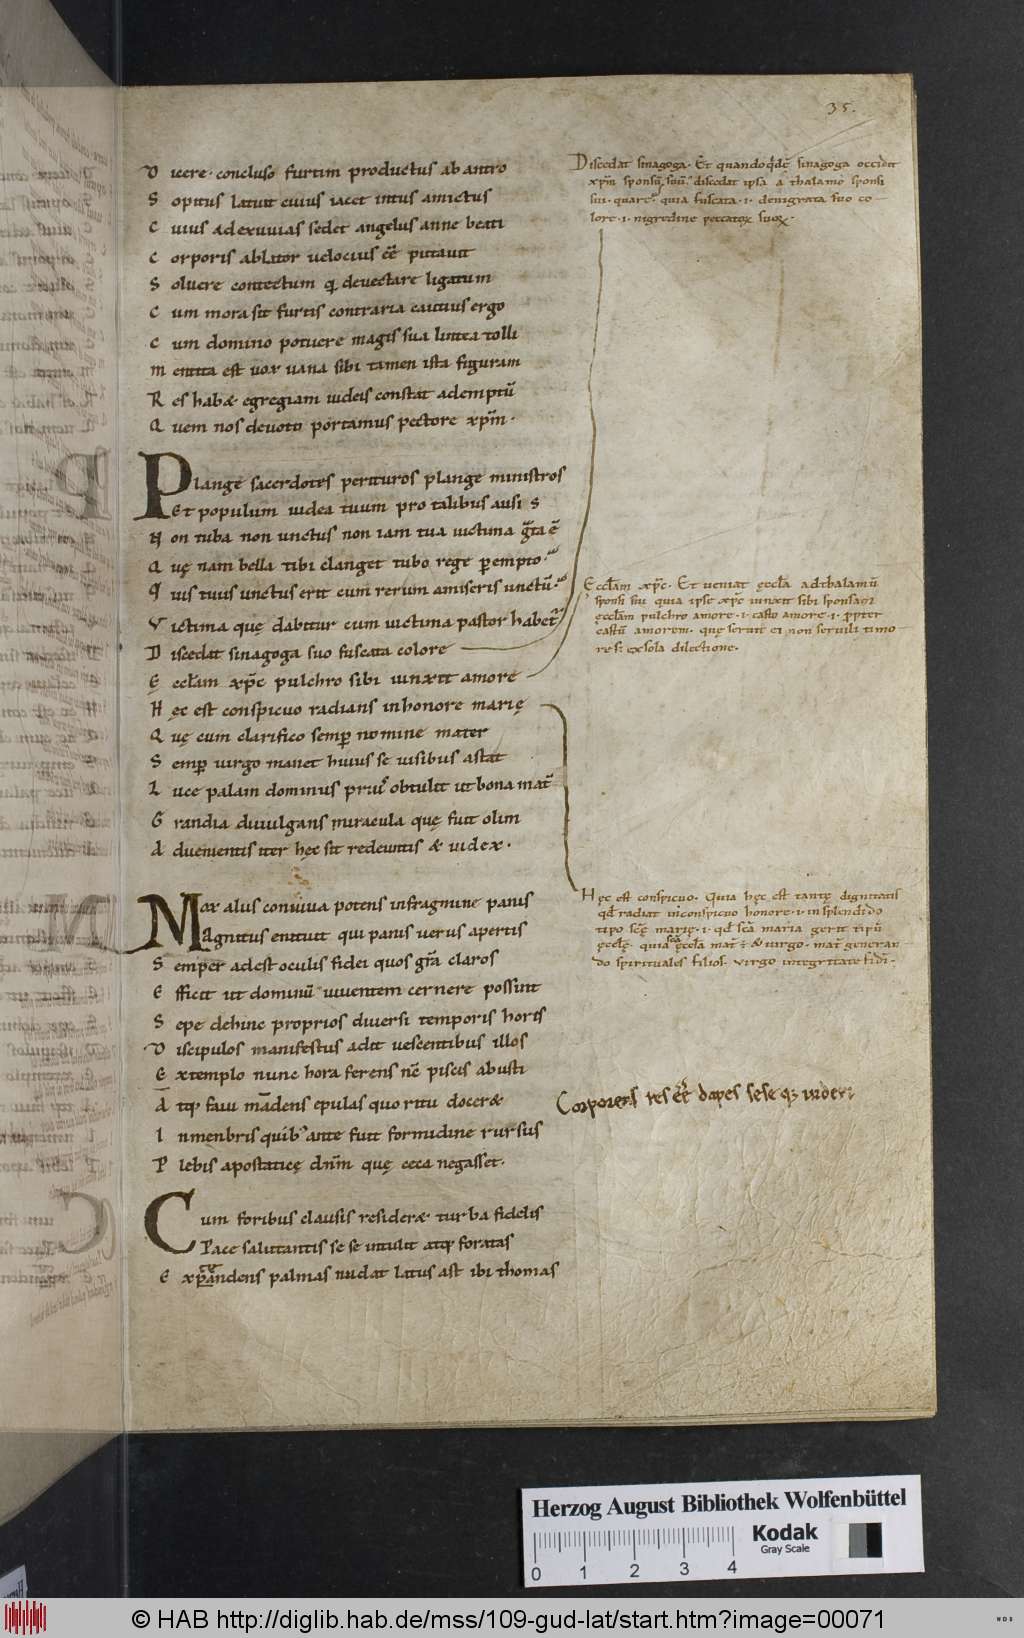 35.
D icere· concluso furtim productus ab antro
S opitus latuit cuius iacet intus amictus
C uius ad exuuias sedet angelus anne beati
C orporis ablator uelocius eē putauit
S oluere contectum quā deuectare ligatum
C um mora sit furtis contraria cautius ergo
C um domino potuere magis sua lintea tolli
M entita est uox uana sibi tamen ista figuram
R es habæ egregiam iudeis constat ademptū
Q uem nos deuoti portamus pectore xp̄m·
Plange sacerdotes perituros plange ministros
Et populum iudea tuum pro talibus ausis
N on tuba non unctus non iam tua uictima grāta ē
Q uę nam bella tibi clanget tubo rege p̄empto·
Q uis tuus unctus erit cum rerum amiseris unctū·
V ictima quę dabitur cum uictima pastor habetʳ
D iscedat sinagoga suo fuscata colore
Ę ccl̄am xp̄c pulchro sibi iunxit amore
H ęc est conspicuo radians in honore marię
Q uę cum clarifico semp̄ nomine mater
S emp̄ uirgo manet huius se uisibus astat
L uce palam dominus prius obtulit ut bona mat̄
G randia diuulgans miracula quę fuit olim
A duenientis iter hęc sit redeuntis & iudex·
Mox alus conuiua potens infragmine panis
Agnitus enituit qui panis uerus apertis
S emper adest oculis fidei quos gr̄a claros
E fficit ut dominū uiuentem cernere possint
S epe dehinc proprios diuersi temporis horis
D iscipulos manifestus adit uescentibus illos
E xtemplo nunc hora ferens nc̄ piscis abusti
A tq; faui mādens epulas quo ritu docer&
I nmenbris quib; ante fuit formidine rursus
P lebis apostaticę dn̄m quę ceca negasset·
Cum foribus clausis resideræ· turba fidelis
Pace salutantis se se intulit atq; foratas
E xpandens palmas nudat latus ast ibi thomas
Discedat sinagoga· Et quandoq̄dē sinagoga occidit
xp̄m sponsū suū· discedat ipsa a thalamo sponsi
sui· quare· quia fuscata·i· denigrata suo co
lore·i· nigredine peccatoꝝ suoꝝ·
Ęccl̄am xp̄c· Et ueniat ęccl̄a ad thalamū
sponsi sui quia ipse xp̄c iunxit sibi sponsam
ęccl̄am pulchro amore·i· casto amore·i· p̄pter
castū amorem· quę seruit ei non seruili timo
re s; ex sola dilectione·
Hęc est conspicuo· Quia hęc est tantę dignitatis
qd̄ radiat inconspicuo honore·i· in splendido
tipo scę marię·i· qd̄ sc̄a maria gerit tipū
ęcclę· quia sc̄a ęccl̄a mat̄ ÷ & uirgo· mat̄ generan
do spirituales filios· uirgo integritate fidei·
Corporeus res eēt dapes sese q; uideri
Herzog August Bibliothek Wolfenbüttel
Kodak
Gray Scale
0 1 2 3 4
© HAB http://diglib.hab.de/mss/109-gud-lat/start.htm?image=00071